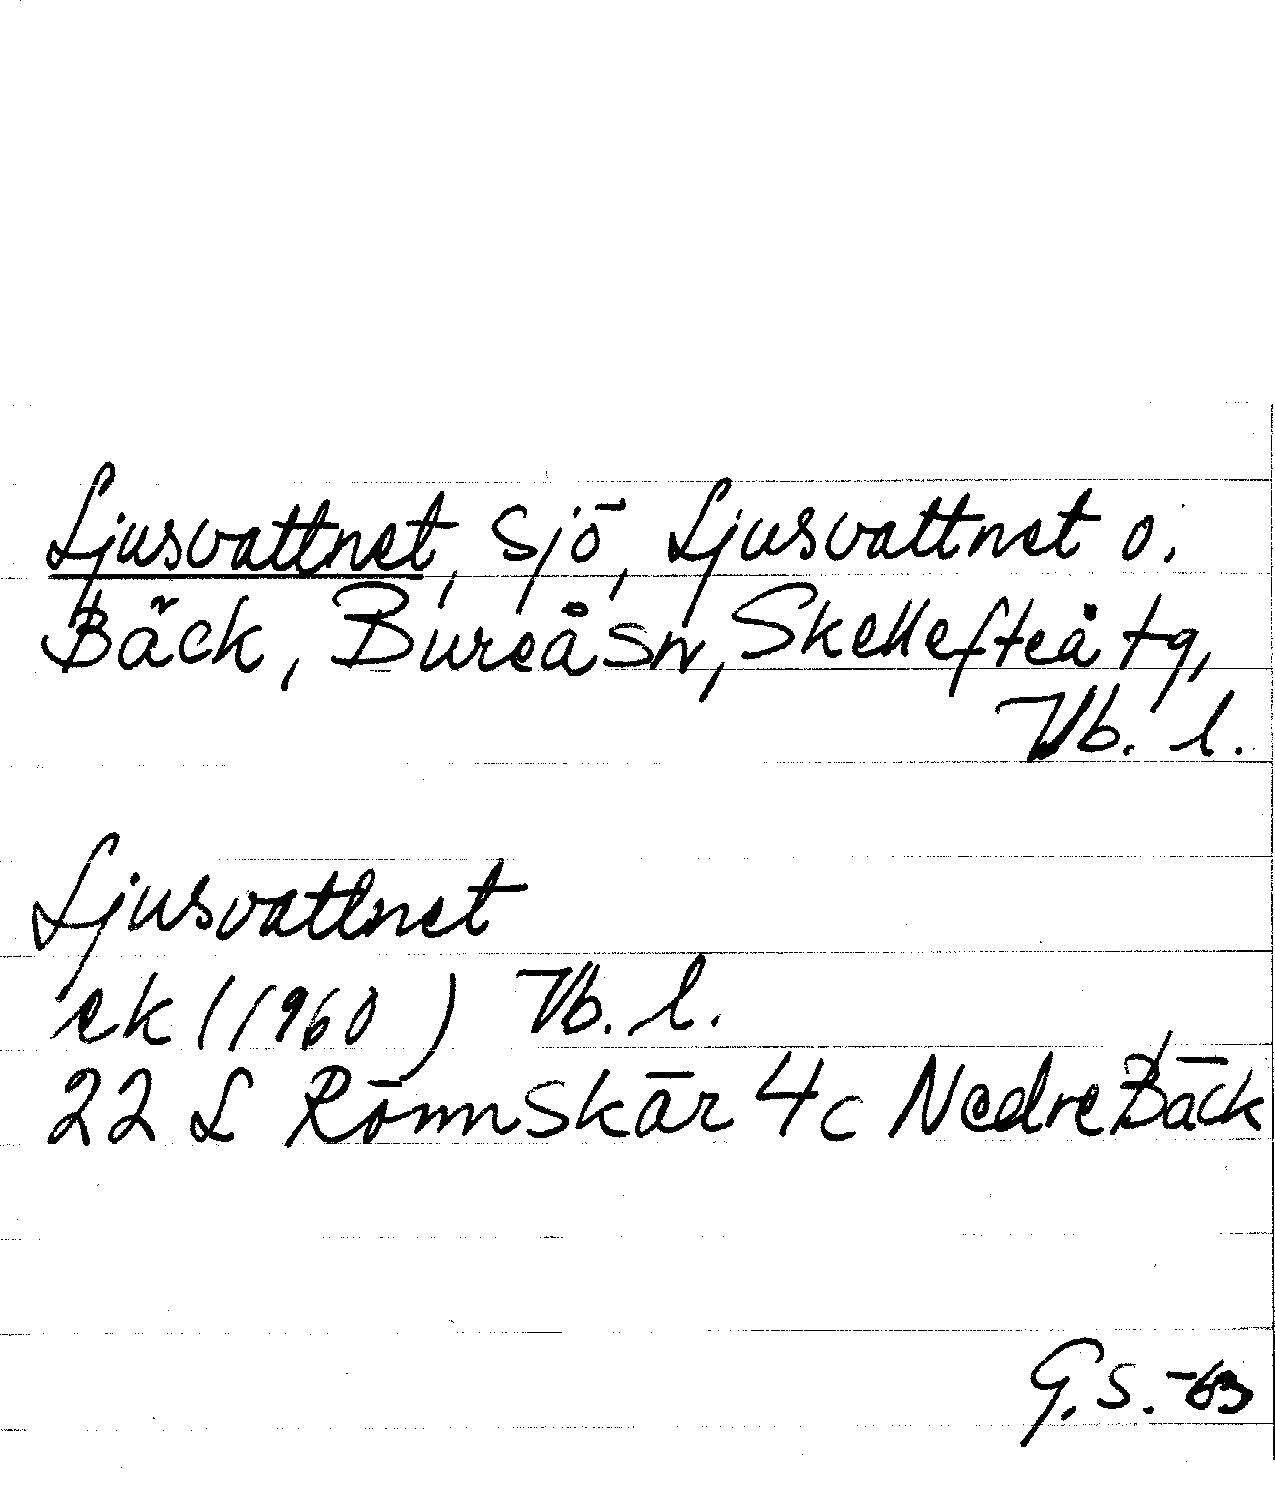 Ljusvattnet, sjö, Ljusvattnet o.
Bäck, Bureå sn, Skellefteå tg,
Vb. l.
Ljusvattnet
ek (1960) Vb. l.
22 L Rönnskär 4c Nedre Bäck
G. S. -63